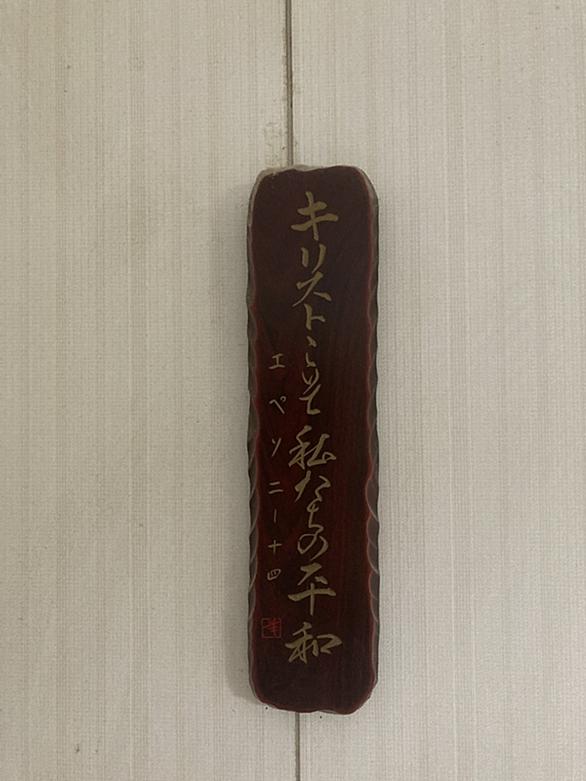 キリストこそ私たちの平和
エペソ二ー十四